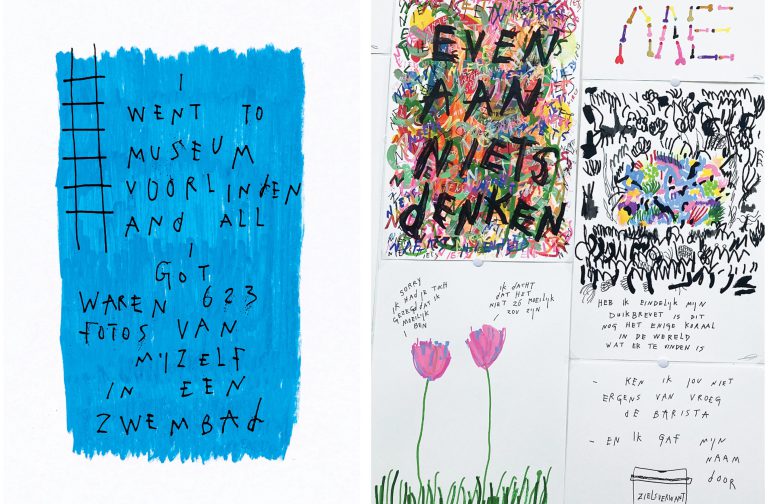 I
WENT TO
MUSEUM
VOORLINdEN
ANd ALL
I
GOT
WAREN 623
FOTOS VAN
MIJZELF
IN EEN
ZWEMBAd
EVEN
AAN
NIETS
dENKEN
SORRY
IK HAd JE TOCH
GEZEGd dAT IK
MOEILIJK
BEN
IK dACHT
dAT HET
NIET ZÓ MOEILIJK
ZOU ZIJN
HEB IK EINdELIJK MIJN
dUIKBREVET IS dIT
NOG HET ENIGE KORAAL
IN dE WERELd
WAT ER TE VINdEN IS
- KEN IK JOU NIET
ERGENS VAN VROEG
dE BARISTA
- EN IK GAF MIJN
NAAM
dOOR
ZIELSVERWANT